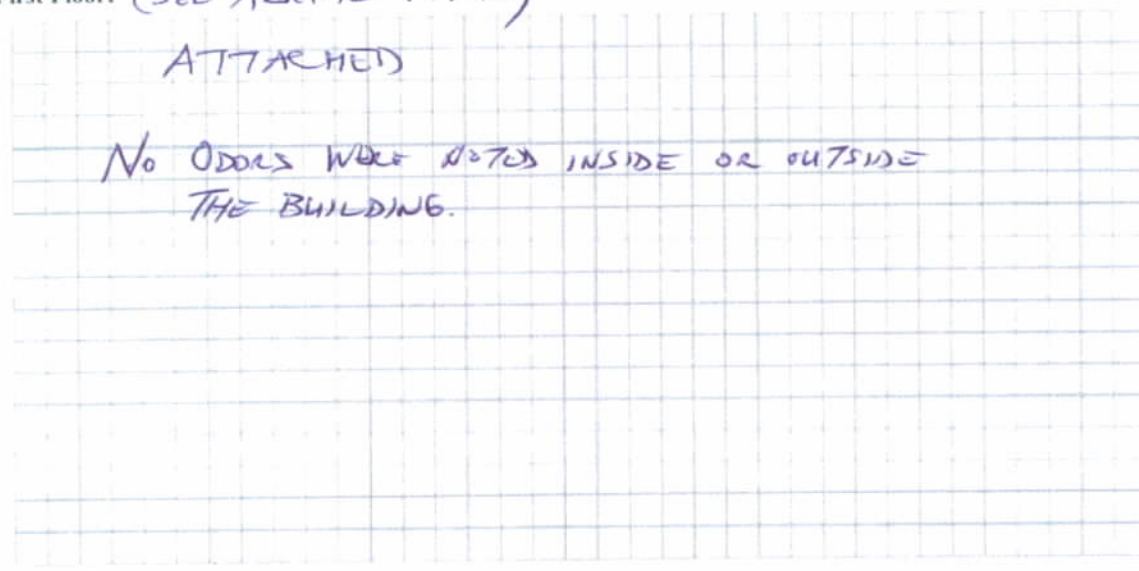 First Floor: (SEE
ATTACHED
NO ODORS WERE NOTED INSIDE OR OUTSIDE
THE BUILDING.